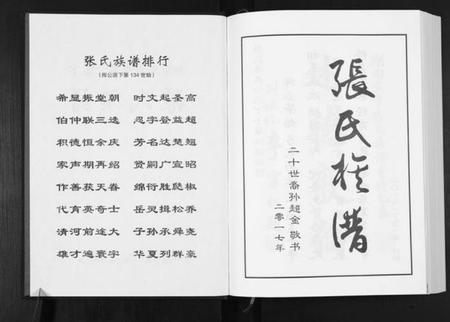 张氏族谱排行
(挥公派下第134世始)
希显振堂朝 时文起圣高
伯仲联三选 忍字登益超
积德恒余庆 芳名达楚翘
家声期再绍 贤嗣广宣昭
作善获天眷 绵衍胜 椒
代育英奇士 岳灵揖松乔
清河前途大 子孙承舜尧
雄才遍寰宇 华夏列群豪
張氏族谱
二十世裔孙超金敬书
二零一七年